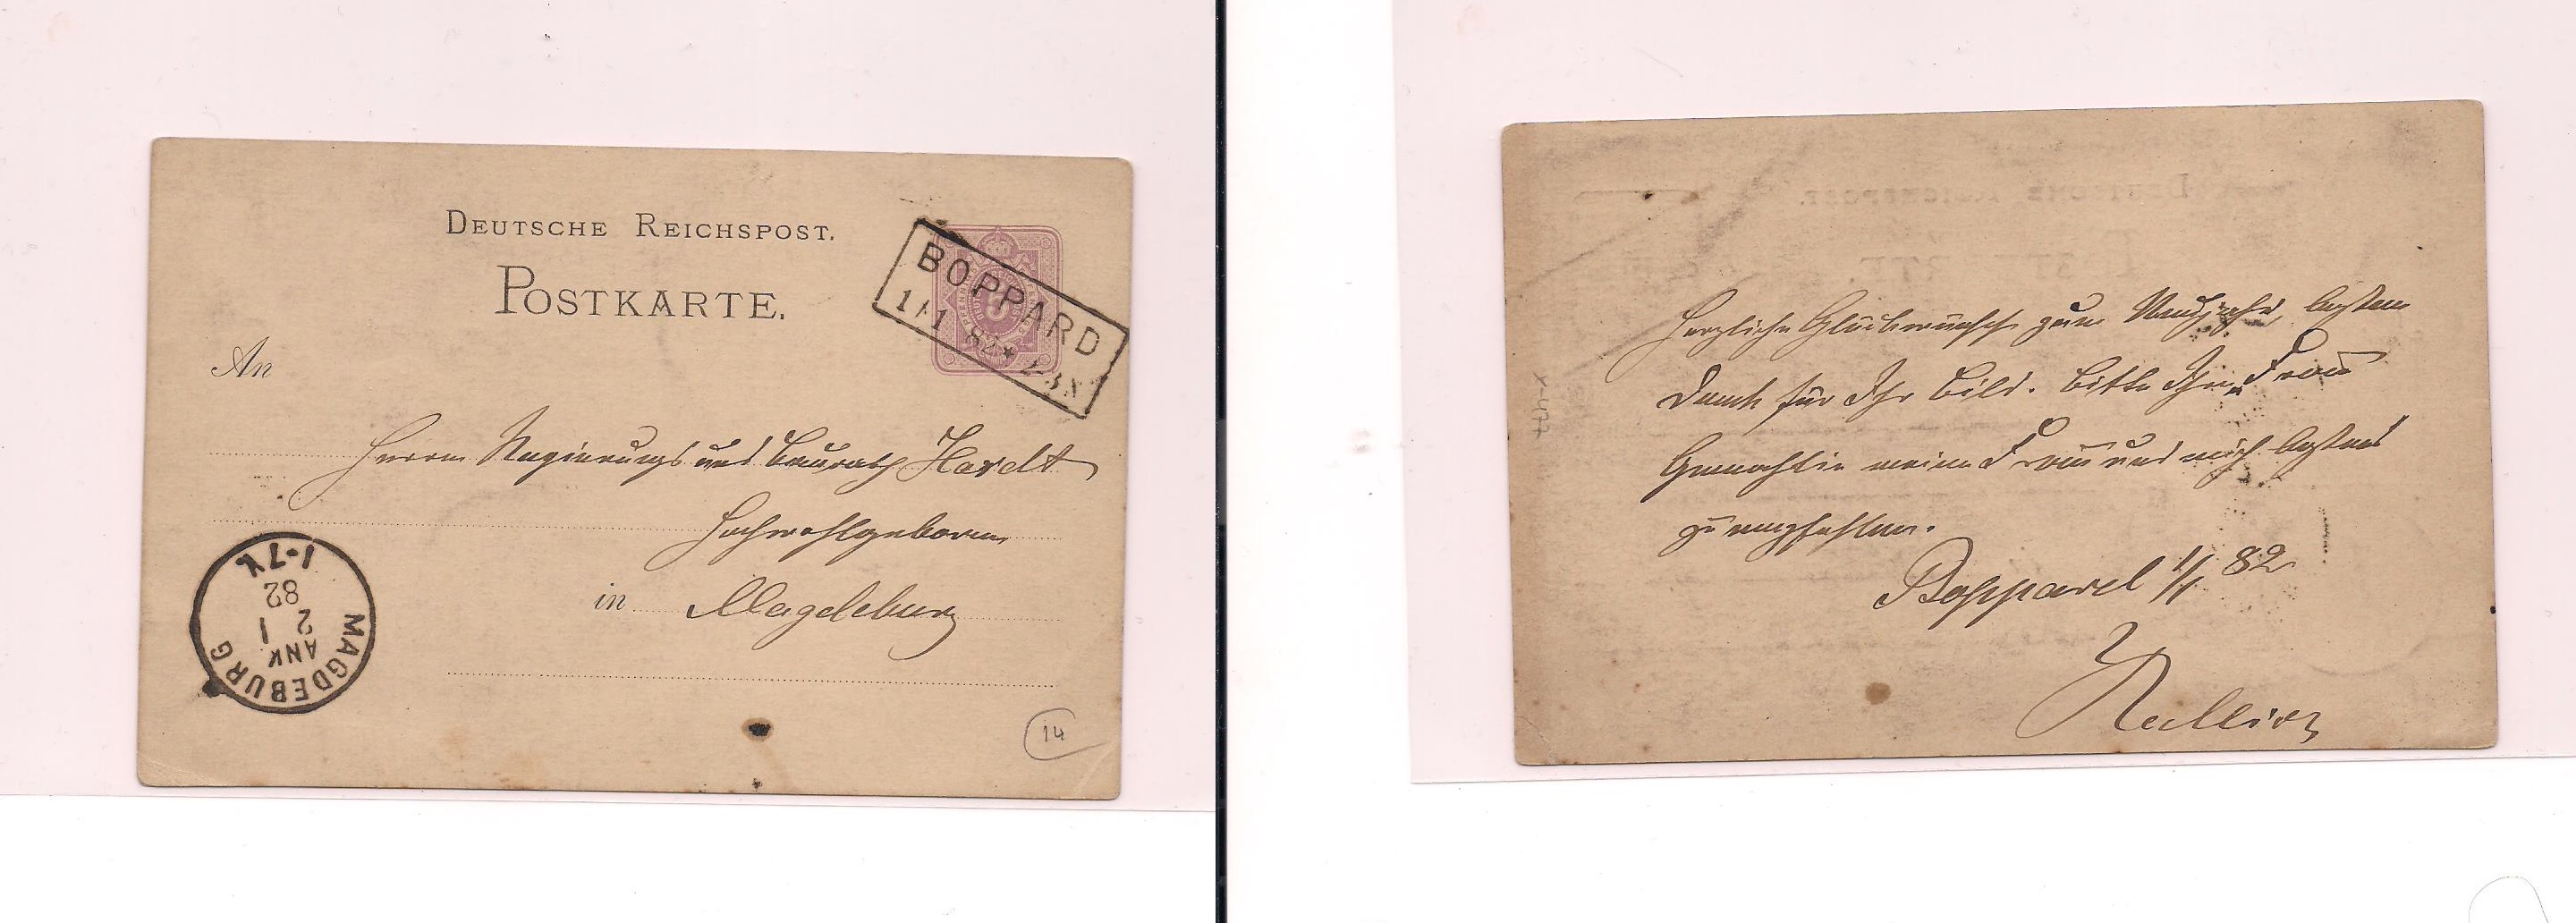 DEUTSCHE REICHSPOST.
POSTKARTE.
BOPPARD
1/1 82 * 2-3 N
An
Herrn Regierungs und Baurath Hardt
Hochwohlgeboren
in Magdeburg
MAGDEBURG
ANK
2 1
82
1-7V.
14
Herzliche Glückwünsche zum Neujahr, besten
Dank für Ihr Bild. Bitte Ihrer Frau
Gemahlin meine Frau und mich bestens
zu empfehlen.
Boppard 1/1 82